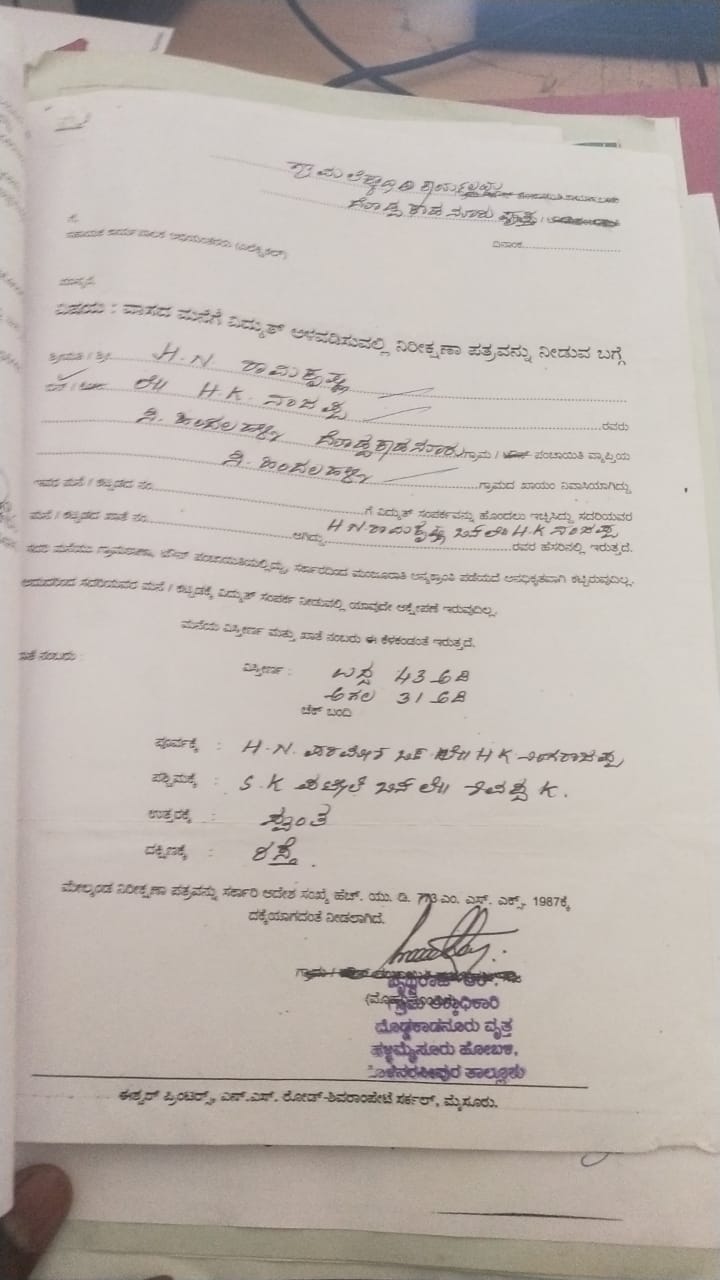 ಗ್ರಾಮಲೆಕ್ಕಾಧಿಕಾರಿ ಕಾರ್ಯಾಲಯ
ದೊಡ್ಡಕಾಡನೂರು ವೃತ್ತ
ದಿನಾಂಕ
ಗೆ,
ಸಹಾಯಕ ಕಾರ್ಯಪಾಲಕ ಅಭಿಯಂತರರು (ಎಲೆಕ್ಟ್ರಿಕಲ್)
ಮಾನ್ಯರೆ,
ವಿಷಯ : ವಾಸದ ಮನೆಗೆ ವಿದ್ಯುತ್ ಅಳವಡಿಸುವಲ್ಲಿ ನಿರೀಕ್ಷಣಾ ಪತ್ರವನ್ನು ನೀಡುವ ಬಗ್ಗೆ
ಶ್ರೀಮತಿ / ಶ್ರೀ H.N. ರಾಮಕೃಷ್ಣ
ಬಿನ್ / ಲೇ|| H.K. ನಂಜಪ್ಪ ರವರು
ದೊಡ್ಡಕಾಡನೂರು ಗ್ರಾಮ / ಪಂಚಾಯಿತಿ ವ್ಯಾಪ್ತಿಯ
ಗ್ರಾಮದ ಖಾಯಂ ನಿವಾಸಿಯಾಗಿದ್ದು
ಇವರ ಮನೆ / ಕಟ್ಟಡದ ನಂ. ಗೆ ವಿದ್ಯುತ್ ಸಂಪರ್ಕವನ್ನು ಹೊಂದಲು ಇಚ್ಛಿಸಿದ್ದು ಸದರಿಯವರ
ಮನೆ / ಕಟ್ಟಡದ ಖಾತೆ ನಂ. ಆಗಿದ್ದು H.N. ರಾಮಕೃಷ್ಣ ಬಿನ್ ಲೇ|| H.K ನಂಜಪ್ಪ ರವರ ಹೆಸರಿನಲ್ಲಿ ಇರುತ್ತದೆ.
ಸದರಿ ಮನೆಯು ಗ್ರಾಮಠಾಣಾ, ಟೌನ್ ಪಂಚಾಯಿತಿಯಲ್ಲಿದ್ದು, ಸರ್ಕಾರದಿಂದ ಮಂಜೂರಾತಿ ಅನ್ಯಕ್ರಾಂತಿ ಪಡೆಯದೆ ಅನಧಿಕೃತವಾಗಿ ಕಟ್ಟಿರುವುದಿಲ್ಲ.
ಆದುದರಿಂದ ಸದರಿಯವರ ಮನೆ / ಕಟ್ಟಡಕ್ಕೆ ವಿದ್ಯುತ್ ಸಂಪರ್ಕ ನೀಡುವಲ್ಲಿ ಯಾವುದೇ ಆಕ್ಷೇಪಣೆ ಇರುವುದಿಲ್ಲ.
ಮನೆಯ ವಿಸ್ತೀರ್ಣ ಮತ್ತು ಖಾತೆ ನಂಬರು ಈ ಕೆಳಕಂಡಂತೆ ಇರುತ್ತದೆ.
ಖಾತೆ ನಂಬರು :
ವಿಸ್ತೀರ್ಣ : ಉದ್ದ 43 ಅಡಿ
ಅಗಲ 31 ಅಡಿ
ಚೆಕ್ ಬಂದಿ
ಪೂರ್ವಕ್ಕೆ : H.N. ಪರಮೇಶ ಬಿನ್ ಲೇ|| H K
ಪಶ್ಚಿಮಕ್ಕೆ : S.K ಬಿನ್ ಲೇ|| K.
ಉತ್ತರಕ್ಕೆ : ಸ್ವಂತ
ದಕ್ಷಿಣಕ್ಕೆ : ರಸ್ತೆ.
ಮೇಲ್ಕಂಡ ನಿರೀಕ್ಷಣಾ ಪತ್ರವನ್ನು ಸರ್ಕಾರಿ ಆದೇಶ ಸಂಖ್ಯೆ ಹೆಚ್. ಯು. ಡಿ. 773 ಎಂ. ಎಸ್. ಎಕ್ಸ್. 1987ಕ್ಕೆ
ದಕ್ಕೆಯಾಗದಂತೆ ನೀಡಲಾಗಿದೆ.
ಗ್ರಾಮ /
ಗ್ರಾಮ ಲೆಕ್ಕಾಧಿಕಾರಿ
ದೊಡ್ಡಕಾಡನೂರು ವೃತ್ತ
ಹಳ್ಳಿಮೈಸೂರು ಹೋಬಳಿ,
ಹೊಳೆನರಸೀಪುರ ತಾಲ್ಲೂಕು
ಈಶ್ವರ್ ಪ್ರಿಂಟರ್ಸ್, ಎನ್.ಎಸ್. ರೋಡ್-ಶಿವರಾಂಪೇಟೆ ಸರ್ಕಲ್, ಮೈಸೂರು.